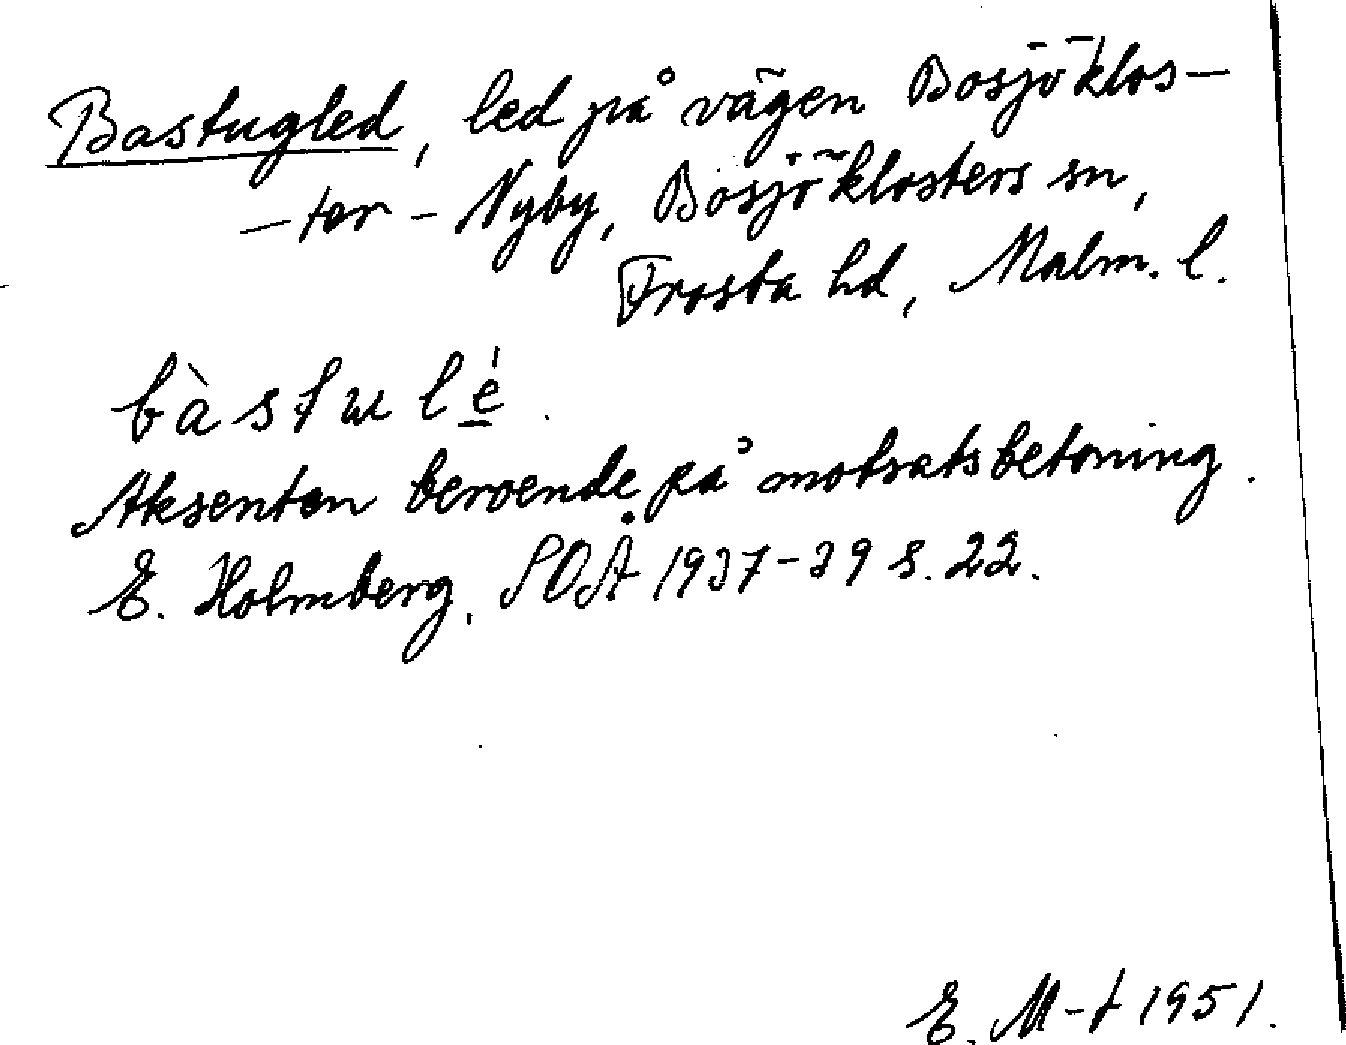 Bastugled, led på vägen Bosjöklos-
-ter - Nyby, Bosjöklosters sn,
Frosta hd, Malm. l.
bàstulé.
Aksenten beroende på motsatsbetoning.
E. Holmberg, SOÅ 1937-39 s. 22.
E. M-t 1951.